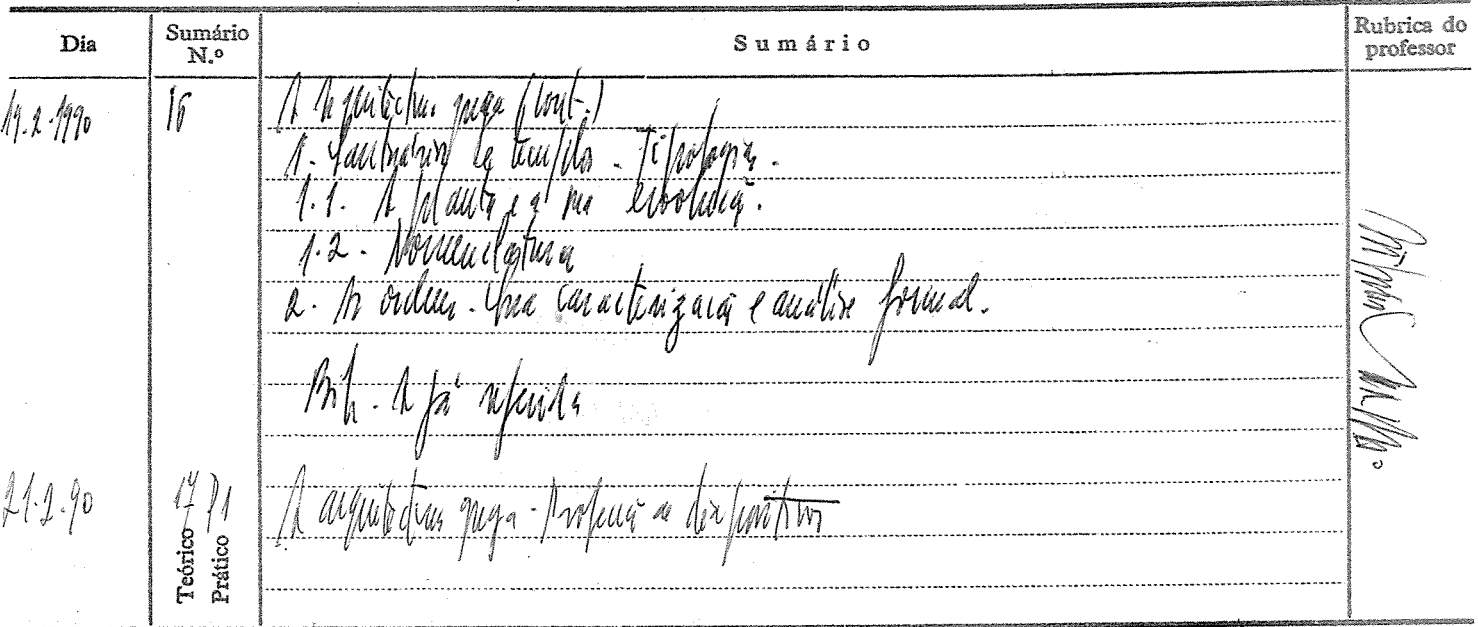 Dia
Sumário N.º
Sumário
Rubrica do professor
19.2.1990
16
A Arquitectura grega (cont.)
1. Santuários e templos - Tipologias.
1.1. A planta e a sua evolução.
1.2. Nomenclatura
2. As ordens. Sua caracterização e análise formal.
Bib. A já referida
21.2.90
17 P1
A arquitectura grega - Projecção de diapositivos
Teórico
Prático